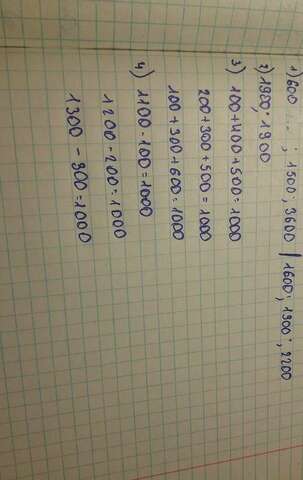 1) 600 ; 1500; 3600 | 1600; 1900; 2200
2) 1900; 1900
3) 100+400+500=1000
200+300+500=1000
100+300+600=1000
4) 1100-100=1000
1200-200=1000
1300-300=1000